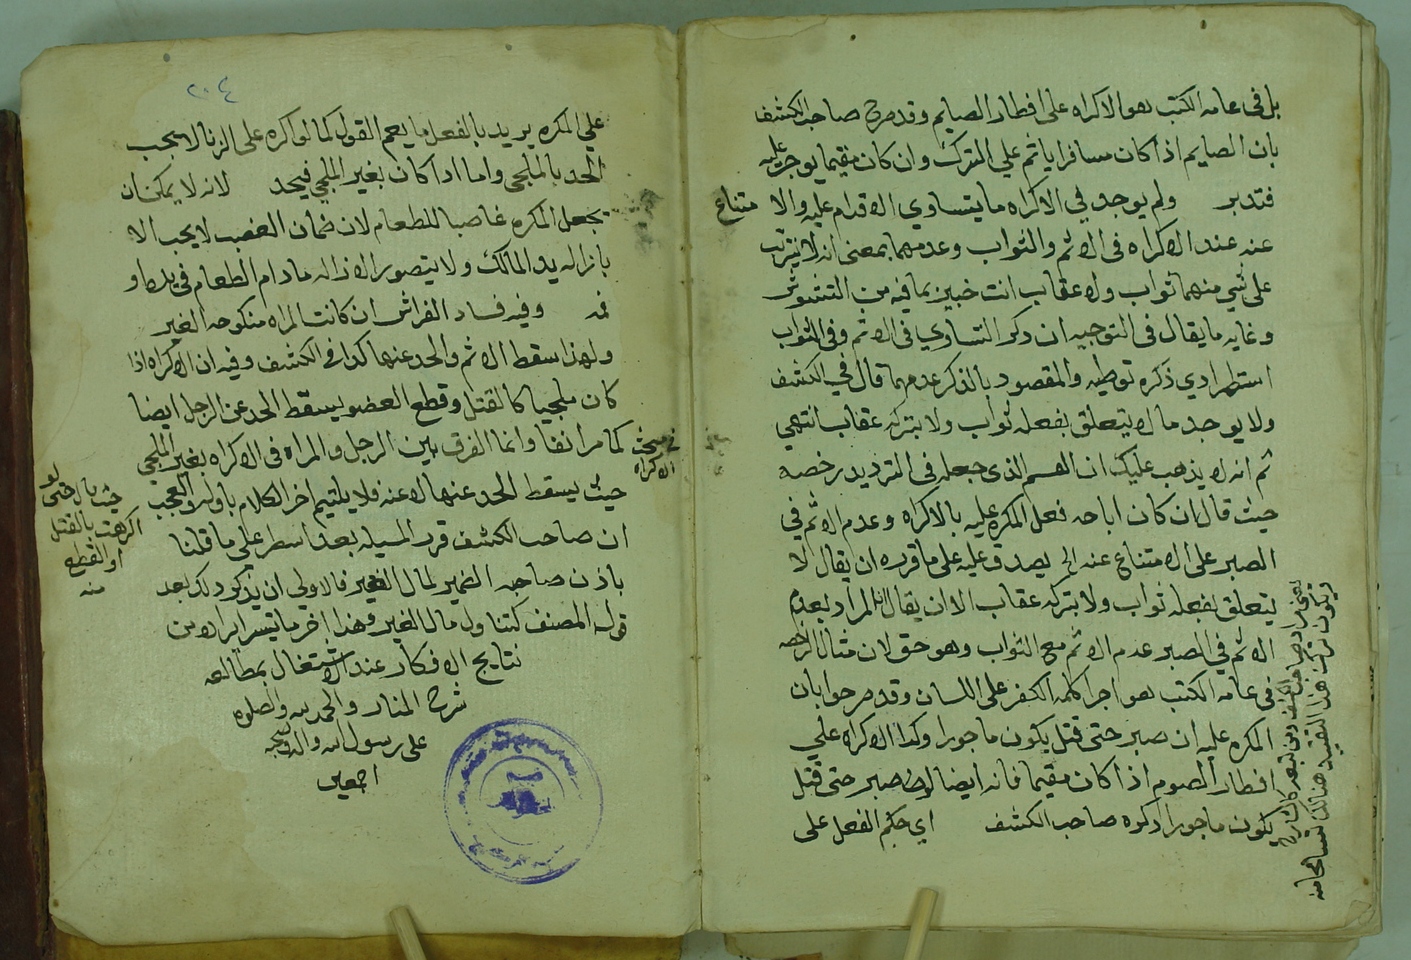 بل في عامه الكتب هو الاكراه على افطار الصايم وقد صرح صاحب الكشف
بان الصايم اذا كان مسافرا ياثم على الترك وان كان مقيما يوجر عليه
فتدبر ولم يوجد في الاكراه ما يتساوي الاقدام عليه والا متناع
عنه عند الاكراه في الاثم والثواب وعدمهما بمعنى انه لا يترتب
على شي منهما ثواب ولا عقاب انت خبير بما فيه من التشوش
وغايه ما يقال في التوجيه ان ذكر التساوي في الاثم وفي الثواب
استطرادي ذكره توطيه والمقصود بالذكر عدمهما قال في الكشف
ولا يوجد ما لا يتعلق بفعله ثواب ولا بتركه عقاب انتهي
ثم انه لا يذهب عليك ان القسم الذي جعله في الترديد رخصه
حيث قال ان كان اباحه فعل المكره عليه بالاكراه وعدم الاثم في
الصبر على الامتناع عنه الخ يصدق عليه على ما قرره ان يقال لا
يتعلق بفعله ثواب ولا بتركه عقاب الا ان يقال المراد بعدم
الاثم في الصبر عدم الاثم مع الثواب وهو حق لان مثال الرخصه
في عامه الكتب هو اجرا كلمه الكفر على اللسان وقد صرحوا بان
المكره عليه ان صبر حتى قتل يكون ماجورا وكذا الاكراه علي
افطار الصوم اذا كان مقيما فانه ايضا لو صبر حتى قتل
يكون ماجورا ذكره صاحب الكشف اي حكم الفعل على
٢٠٤
علي المكره يريد بالفعل ما يعم القول كما لو اكره على الزنا لا يجب
الحد بالملجي واما اذا كان بغير الملجي فيحد لانه لا يمكن ان
تجعل المكره غاصبا للطعام لان ضمان الغصب لا يجب الا
بازاله يد المالك ولا يتصور الازاله مادام الطعام في يده او
فمه وفيه فساد الفراش ان كانت المراه منكوحه الغير
ولهذا سقط الاثم والحد عنها كذا في الكشف وفيه ان الاكراه اذا
كان ملجيا كالقتل وقطع العضو يسقط الحد عن الرجل ايضا
كما مر انفا وانما الفرق بين الرجل والمراه في الاكراه بغير الملجي
في بحث
الاكراه
حيث يسقط الحد عنها لا عنه فلا يلتيم اخر الكلام باوله والعجب
حيث قال حتى لو
اكرهت بالقتل
او القطع
منه
ان صاحب الكشف قرر المسيله بعد اسطر على ما قلنا
باذن صاحبه الضمير لمال الغير فالاولي ان يذكر ذلك بعد
قوله المصنف كتناول مال الغير وهذا اخر ما يتيسر ايراده من
نتايج الافكار عند الاشتغال بمطالعه
شرح المنار والحمد لله والصلوه
على رسول الله واله وصحبه
اجمعين